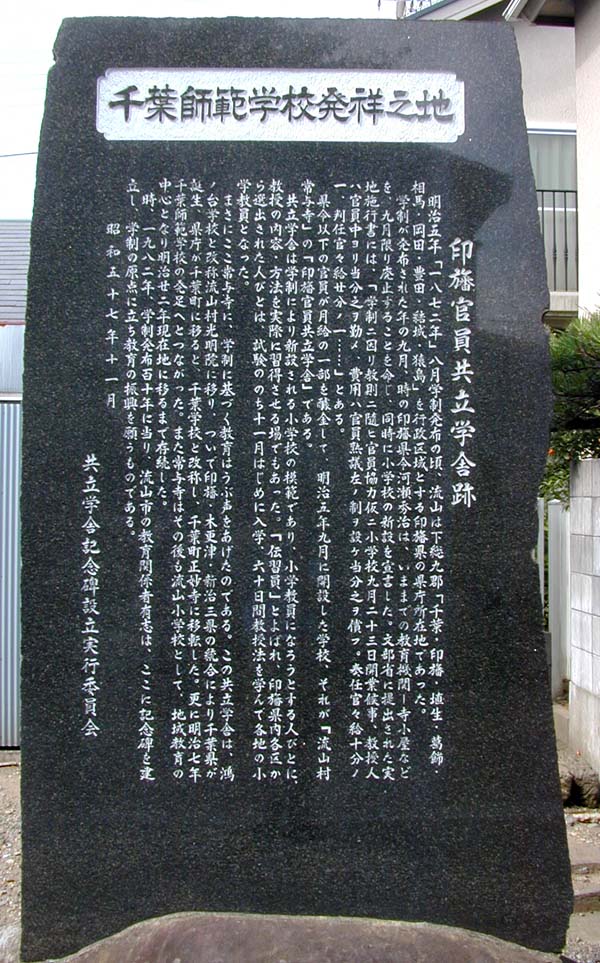 千葉師範学校発祥之地
印旛官員共立学舎跡
明治五年「一八七二年」八月学制発布の頃、流山は下総九郡「千葉・印旛・埴生・葛飾・
相馬・岡田・豊田・結城・猿島」を行政区域とする印旛県の県庁所在地であった。
学制が発布された年の九月、時の印旛県令河瀬秀治は、いままでの教育機関ー寺小屋など
を、九月限り廃止することを命し、同時に小学校の新設を宣言した。文部省に提出された実
地施行書には、「学制ニ因リ教則ニ随ヒ官員協力仮ニ小学校九月二十三日開業候事、教授人
ハ官員中ヨリ当分之ヲ勤メ、費用ハ官員熟議左ノ制ヲ設ケ当分之ヲ償フ。奏任官々給十分ノ
一、判任官々給廿分ノ一……」とある。
県令以下の官員が月給の一部を醵金して、明治五年九月に開設した学校、それが「流山村
常与寺」の「印旛官員共立学舎」である。
共立学舎は学制により新設される小学校の模範であり、小学教員になろうとする人びとに、
教授の内容・方法を実際に習得させる場でもあった。「伝習員」とよばれ、印旛県内各区か
ら選出された人びとは、試験ののち十一月はじめに入学、六十日間教授法を学んで各地の小
学教員となった。
まさにここ常与寺に、学制に基づく教育はうぶ声をあげたのである。この共立学舎は、鴻
ノ台学校と改称流山村光明院に移り、ついで印旛・木更津・新治三県の統合により千葉県が
誕生、県庁が千葉町に移ると、千葉学校と改称し、千葉町正妙寺に移転した。更に明治七年
千葉師範学校の発足へとつながった。また常与寺はその後も流山小学校として、地域教育の
中心となり明治廿二年現在地に移るまで存続した。
時、一九八二年、学制発布百十年に当り、流山市の教育関係者有志は、ここに記念碑を建
立し、学制の原点に立ち教育の振興を願うものである。
昭和五十七年十一月
共立学舎記念碑設立実行委員会